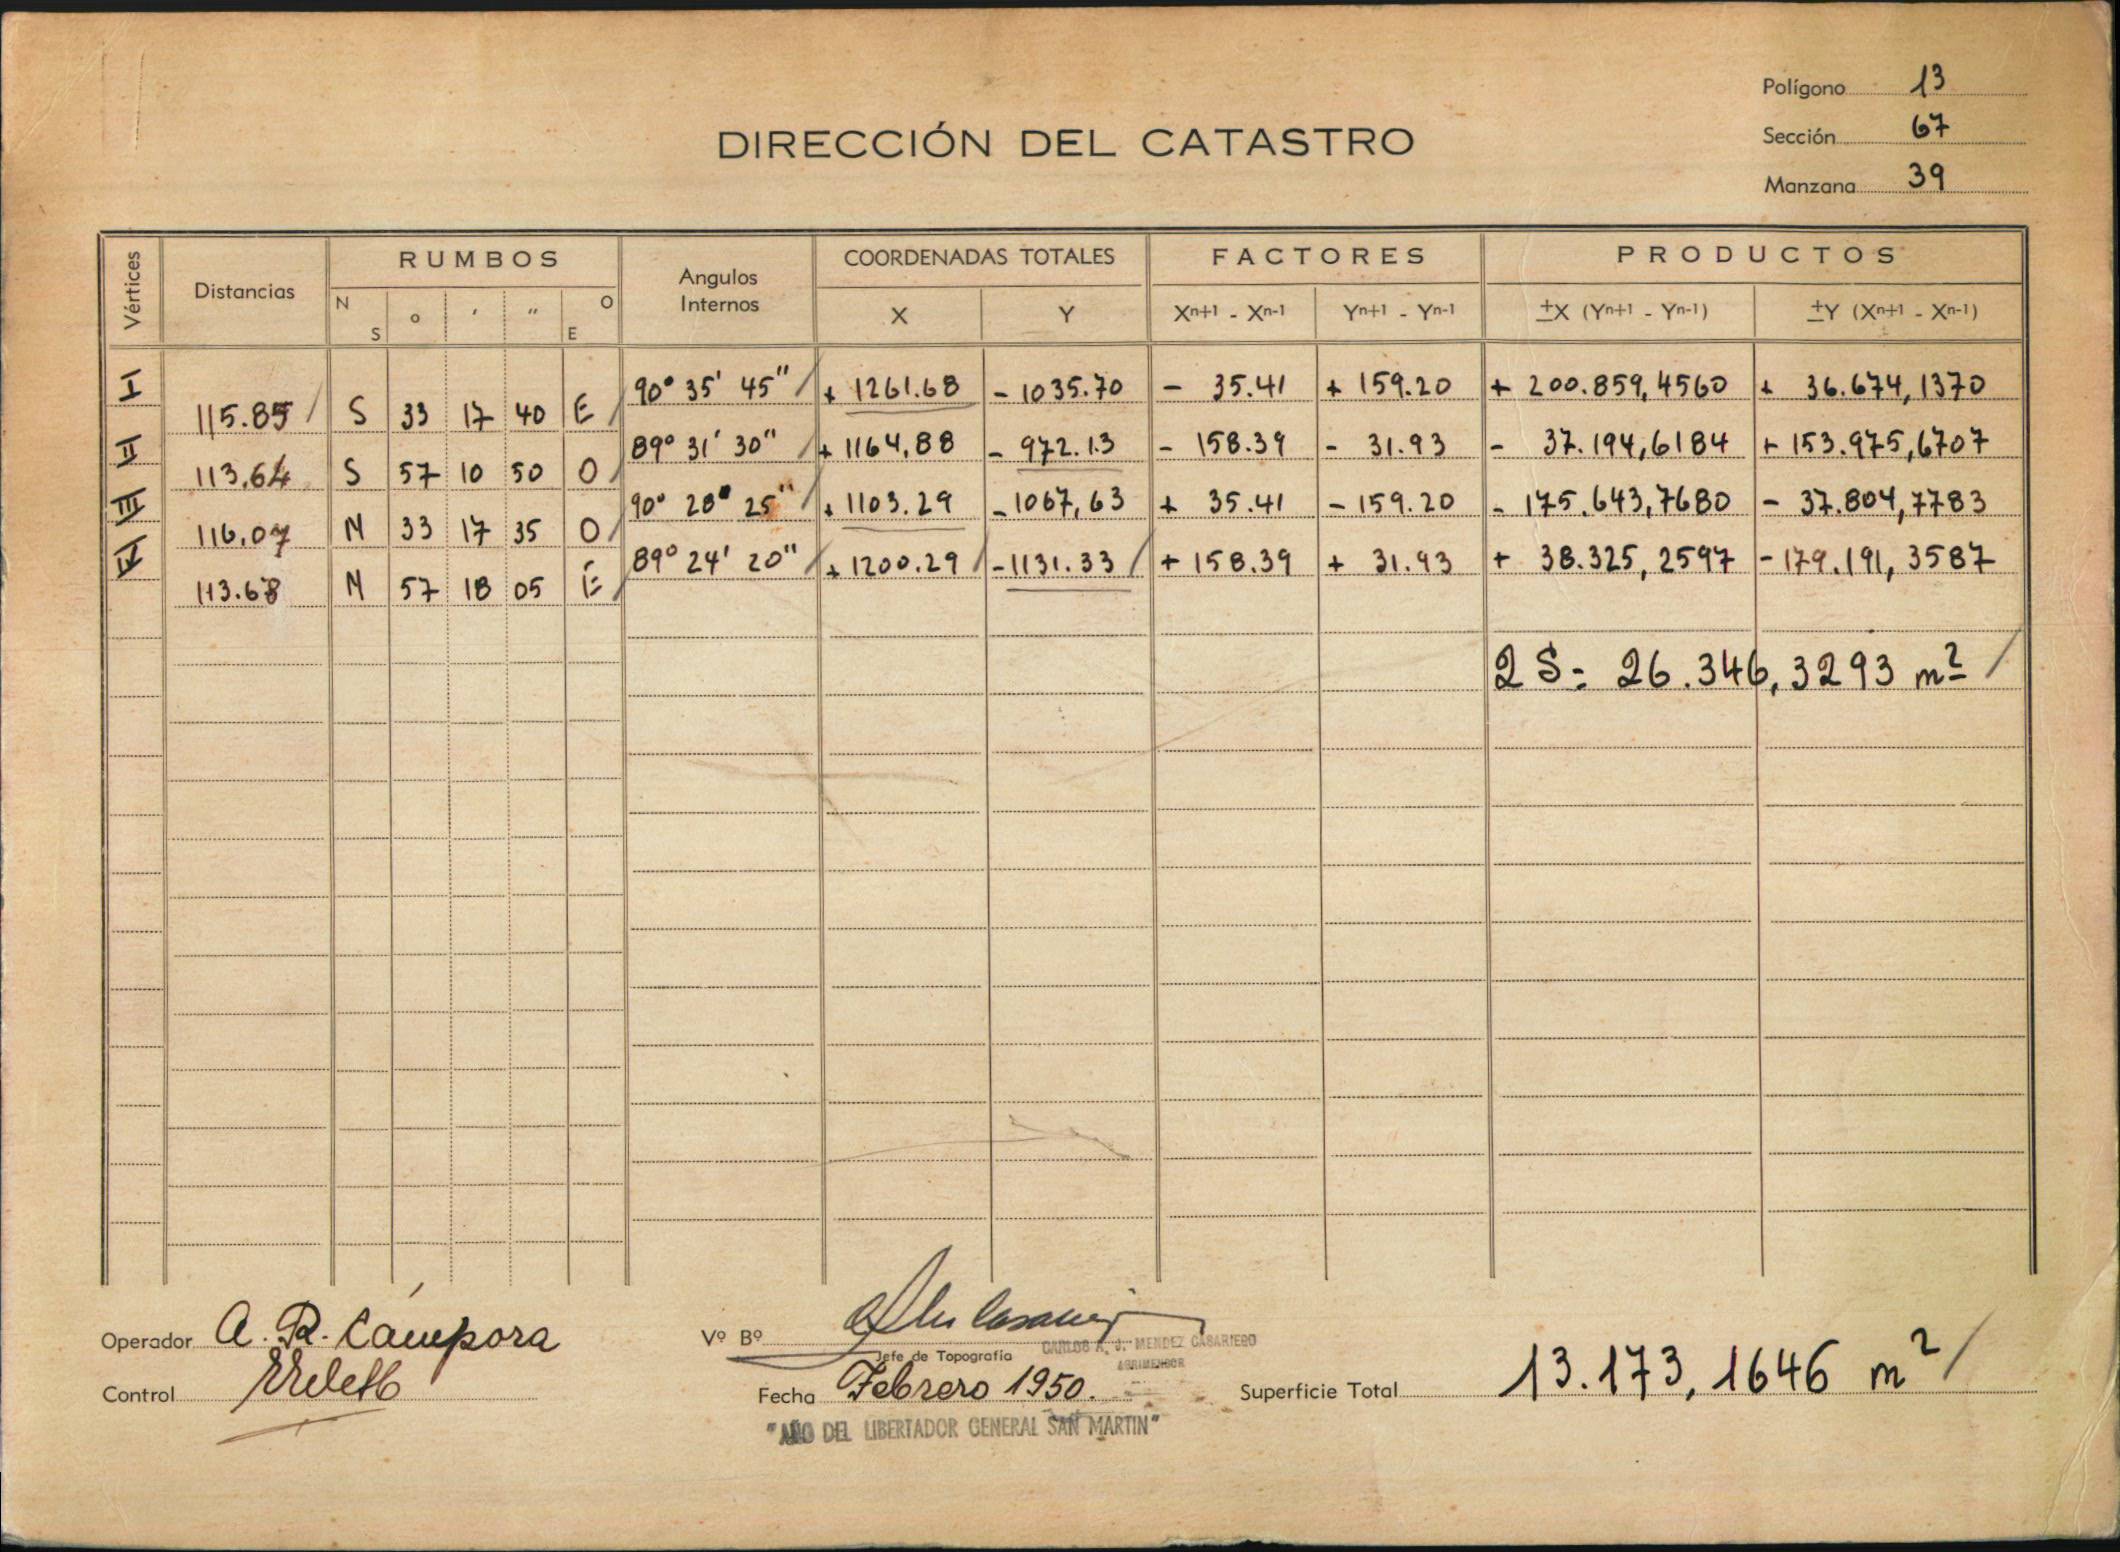 Polígono 13
DIRECCIÓN DEL CATASTRO
Sección 67
Manzana 39
Vértices Distancias RUMBOS Angulos Internos COORDENADAS TOTALES FACTORES PRODUCTOS
N S o ' " O E X Y Xn+1 - Xn-1 Yn+1 - Yn-1 ±X (Yn+1 - Yn-1) ±Y (Xn+1 - Xn-1)
I 90° 35' 45" + 1261.68 - 1035.70 - 35.41 + 159.20 + 200.859,4560 + 36.674,1370
115.85 S 33 17 40 E
II 89° 31' 30" + 1164,88 - 972.13 - 158.39 - 31.93 - 37.194,6184 + 153.975,6707
113.64 S 57 10 50 O
III 90° 28' 25" + 1103.29 - 1067,63 + 35.41 - 159.20 - 175.643,7680 - 37.804,7783
116.07 N 33 17 35 O
IV 89° 24' 20" + 1200.29 - 1131.33 + 158.39 + 31.93 + 38.325,2597 - 179.191,3587
113.68 N 57 18 05 E
2 S = 26.346,3293 m²
Operador A. R. Cámpora Vº Bº
Jefe de Topografía CARLOS A. J. MENDEZ CASARIEGO
AGRIMENSOR
Control Fecha Febrero 1950. Superficie Total 13.173,1646 m²
"AÑO DEL LIBERTADOR GENERAL SAN MARTIN"